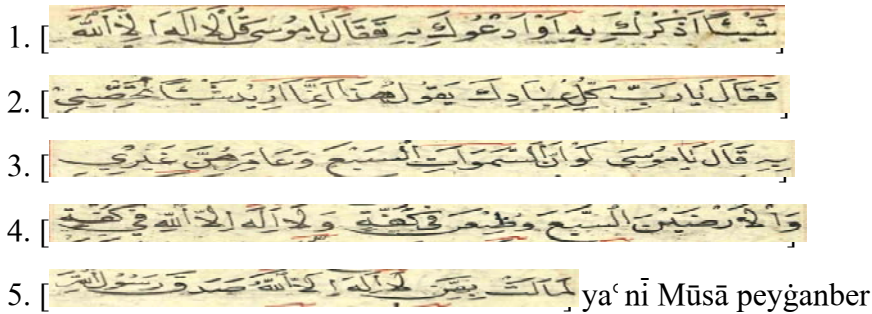 1. [شَيْئًا اَذْكُرُكَ بِهِ اَوْ اَدْعُوكَ بِهِ فَقَالَ يَا مُوسَى قُلْ لَا اِلَهَ اِلَّا اللّٰهُ]
2. [فَقَالَ يَا رَبِّ كُلُّ عِبَادِكَ يَقُولُ هَذَا اِنَّمَا اُرِيدُ شَيْئًا تَخُصُّنِي]
3. [بِهِ قَالَ يَا مُوسَى لَوْ اَنَّ السَّمَوَاتِ السَّبْعَ وَعَامِرَهُنَّ غَيْرِي]
4. [وَالْاَرَضِينَ السَّبْعَ وُضِعْنَ فِي كَفَّةٍ وَلَا اِلَهَ اِلَّا اللّٰهُ فِي كَفَّةٍ]
5. [لَمَالَتْ بِهِنَّ لَا اِلَهَ اِلَّا اللّٰهُ صَدَقَ رَسُولُ اللّٰهِ] yaʿ nī Mūsā peyġanber